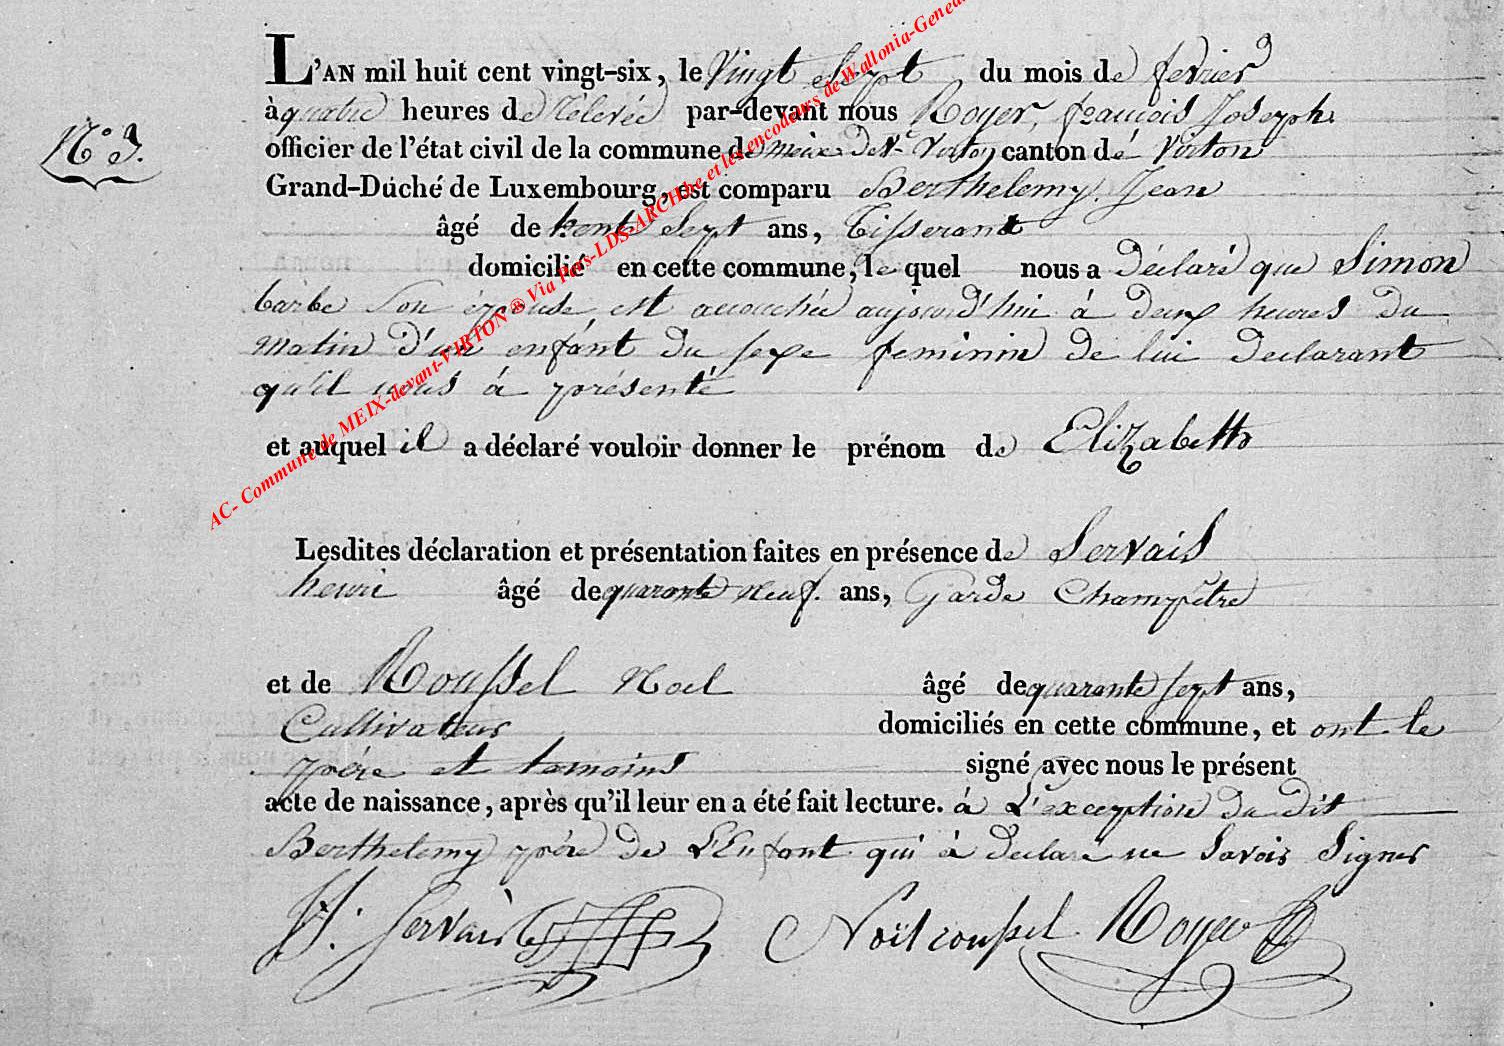 L'AN mil huit cent vingt-six, le Vingt Sept du mois de fevrier
à quatre heures de Rélevée par-devant nous Royer, francois Joseph
officier de l'état civil de la commune de meix Dev.t Virton canton dé Virton
N° 3.
Grand-Duché de Luxembourg, est comparu Berthelemy Jean
âgé de trente Sept ans, Tisserant
domicilié en cette commune, le quel nous a Déclaré que Simon
barbe Son épouse est accouchée aujourd'hui à deux heures Du
Matin D'un enfant Du sexe feminin de lui Declarant
qu'il nous à présenté
et auquel il a déclaré vouloir donner le prénom de Elizabeth
Lesdites déclaration et présentation faites en présence de Servais
henri âgé de quarante neuf ans, Garde Champêtre
et de Roussel Noel âgé de quarante sept ans,
Cultivateur domiciliés en cette commune, et ont le
père et temoins signé avec nous le présent
acte de naissance, après qu'il leur en a été fait lecture. à L'exception du dit
Berthelemy père de L'Enfant qui à declaré ne Savoir Signer
H. Servais Noël roussel Royer
AC- Commune de MEIX-devant-VIRTON ® Via Pers-LDS-ARCHbe et les encodeurs de Wallonia-Genea